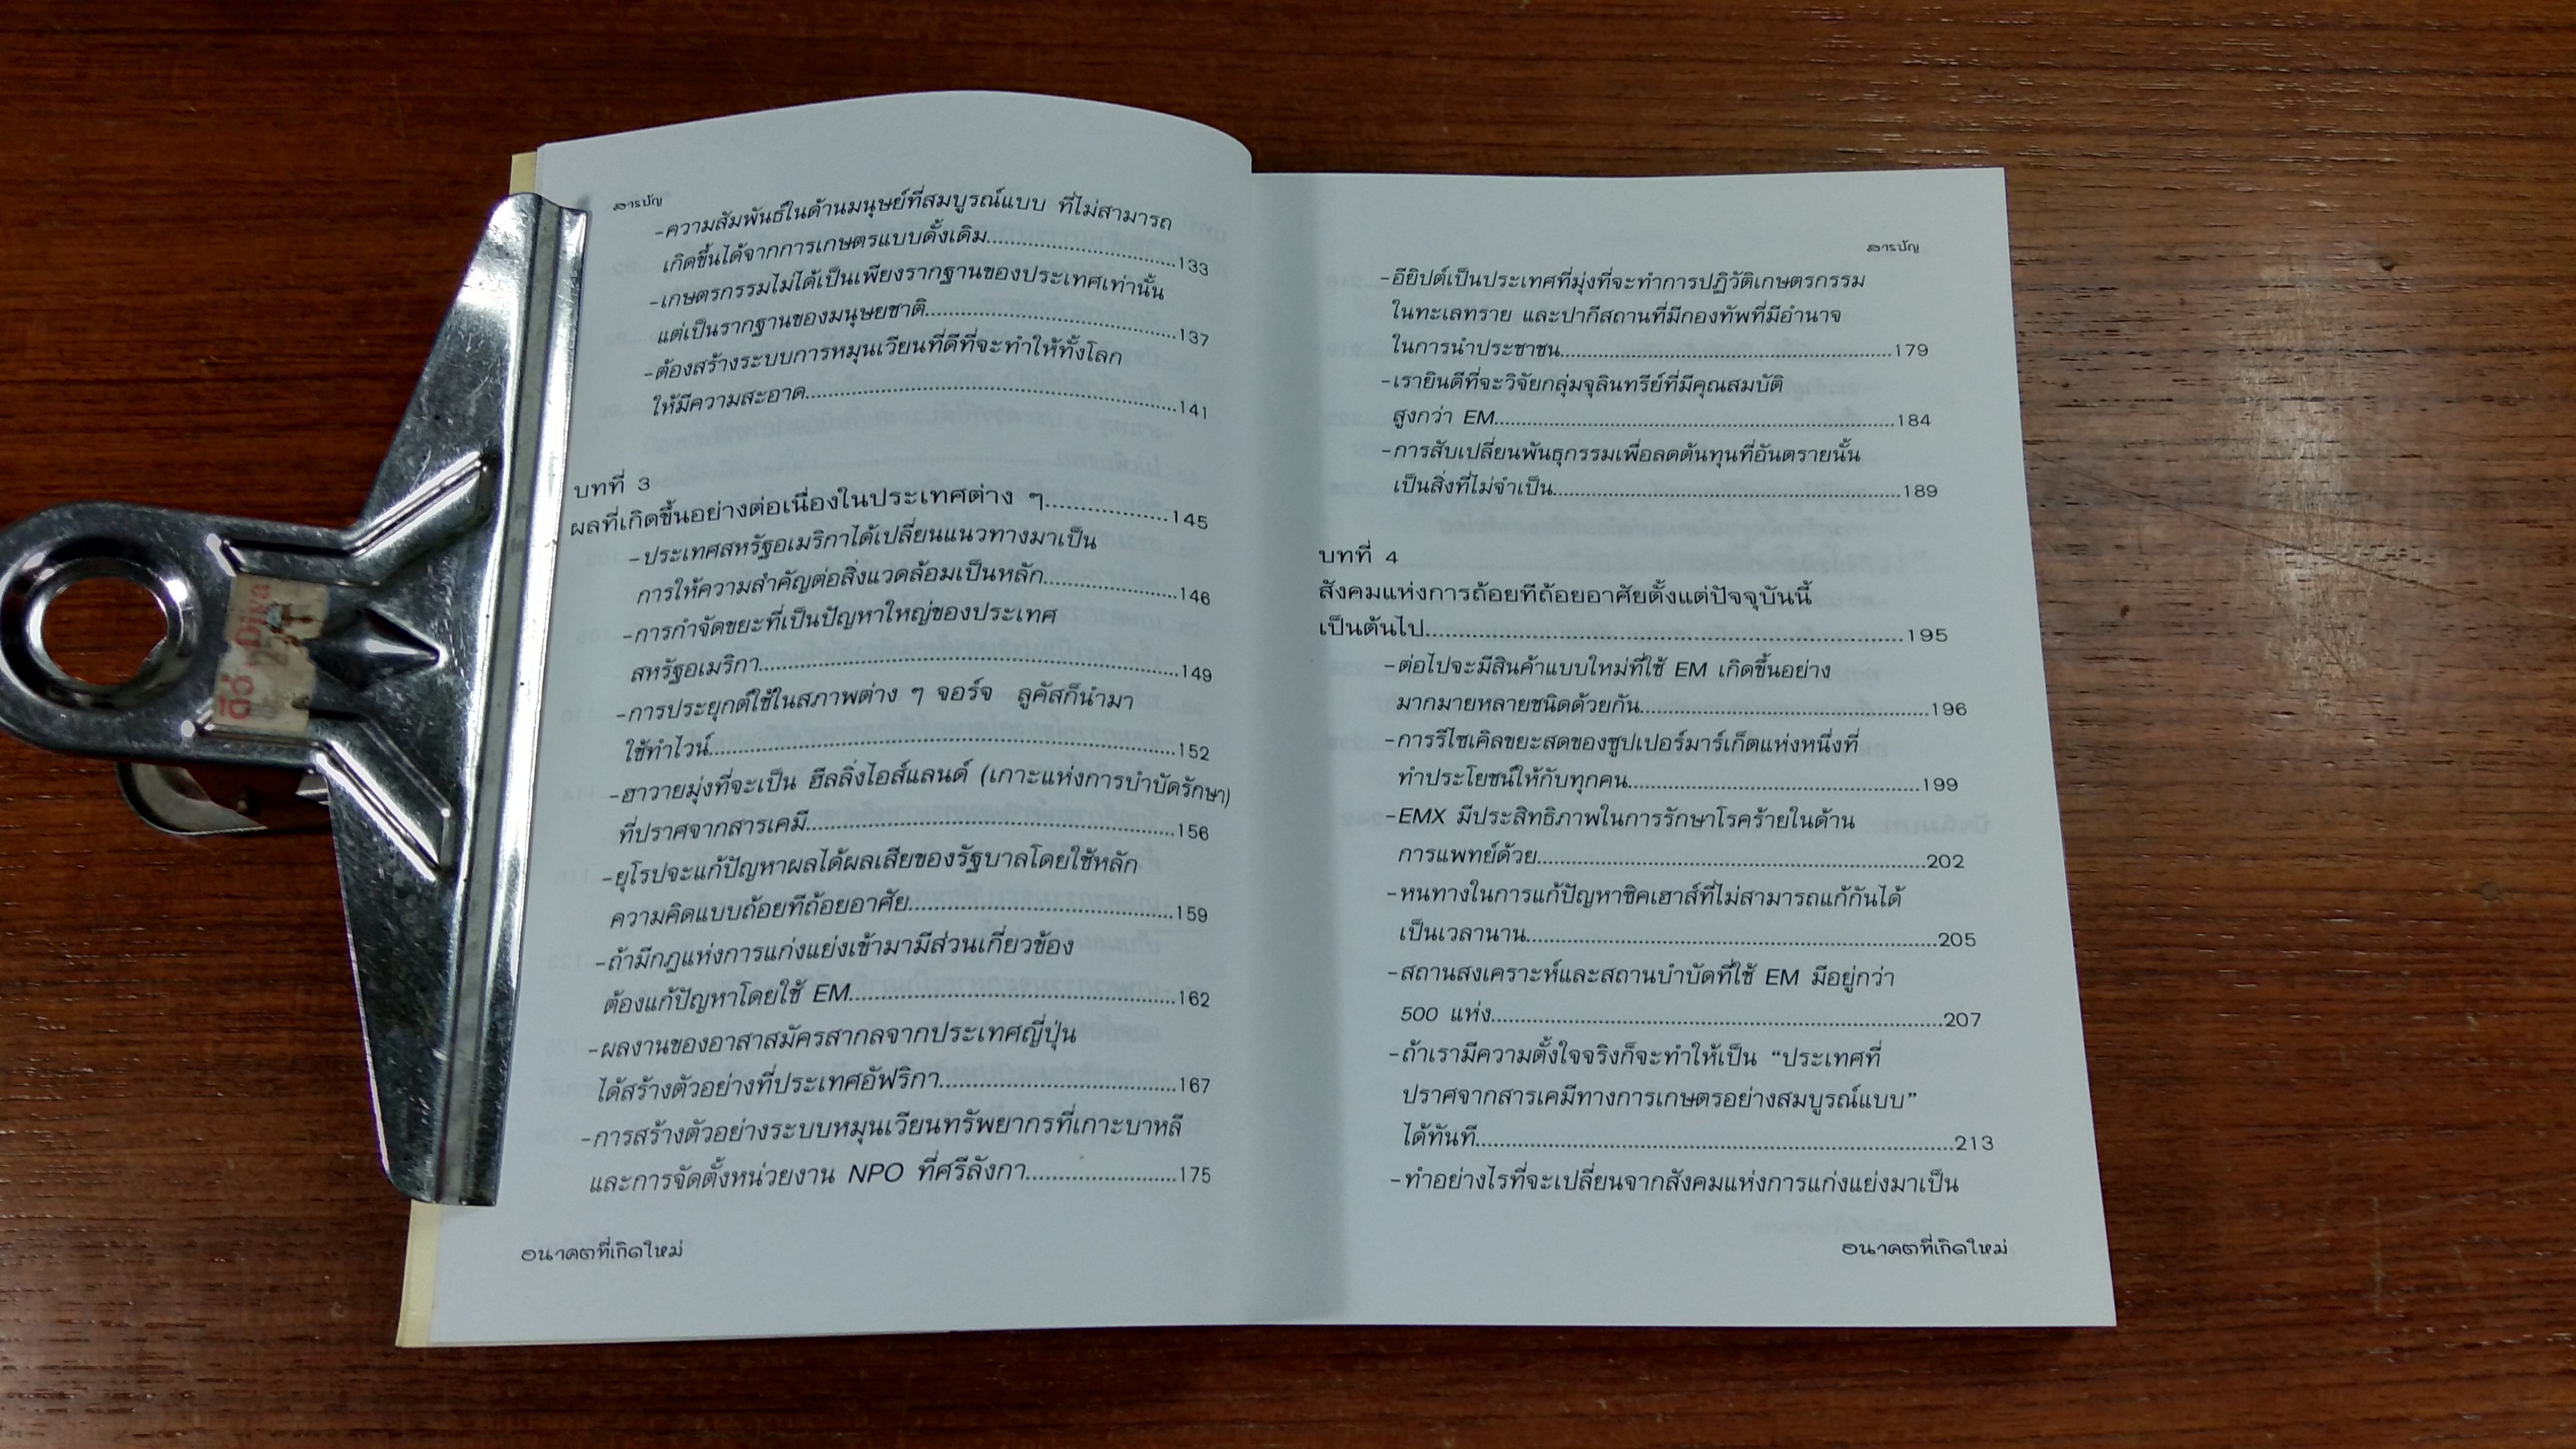 สารบัญ
-ความสัมพันธ์ในด้านมนุษย์ที่สมบูรณ์แบบ ที่ไม่สามารถ
เกิดขึ้นได้จากการเกษตรแบบดั้งเดิม...........................133
-เกษตรกรรมไม่ได้เป็นเพียงรากฐานของประเทศเท่านั้น
แต่เป็นรากฐานของมนุษยชาติ...........................137
-ต้องสร้างระบบการหมุนเวียนที่ดีที่จะทำให้ทั้งโลก
ให้มีความสะอาด...........................141
บทที่ 3
ผลที่เกิดขึ้นอย่างต่อเนื่องในประเทศต่าง ๆ...................145
-ประเทศสหรัฐอเมริกาได้เปลี่ยนแนวทางมาเป็น
การให้ความสำคัญต่อสิ่งแวดล้อมเป็นหลัก...................146
-การกำจัดขยะที่เป็นปัญหาใหญ่ของประเทศ
สหรัฐอเมริกา...........................149
-การประยุกต์ใช้ในสภาพต่าง ๆ จอร์จ ลูคัสก็นำมา
ใช้ทำไวน์...........................152
-ฮาวายมุ่งที่จะเป็น ฮีลลิ่งไอส์แลนด์ (เกาะแห่งการบำบัดรักษา)
ที่ปราศจากสารเคมี...........................156
-ยุโรปจะแก้ปัญหาผลได้ผลเสียของรัฐบาลโดยใช้หลัก
ความคิดแบบถ้อยทีถ้อยอาศัย...........................159
-ถ้ามีกฎแห่งการแก่งแย่งเข้ามามีส่วนเกี่ยวข้อง
ต้องแก้ปัญหาโดยใช้ EM...........................162
-ผลงานของอาสาสมัครสากลจากประเทศญี่ปุ่น
ได้สร้างตัวอย่างที่ประเทศอัฟริกา...........................167
-การสร้างตัวอย่างระบบหมุนเวียนทรัพยากรที่เกาะบาหลี
และการจัดตั้งหน่วยงาน NPO ที่ศรีลังกา...................175
อนาคตที่เกิดใหม่
สารบัญ
-อียิปต์เป็นประเทศที่มุ่งที่จะทำการปฏิวัติเกษตรกรรม
ในทะเลทราย และปากีสถานที่มีกองทัพที่มีอำนาจ
ในการนำประชาชน...........................179
-เรายินดีที่จะวิจัยกลุ่มจุลินทรีย์ที่มีคุณสมบัติ
สูงกว่า EM...........................184
-การสับเปลี่ยนพันธุกรรมเพื่อลดต้นทุนที่อันตรายนั้น
เป็นสิ่งที่ไม่จำเป็น...........................189
บทที่ 4
สังคมแห่งการถ้อยทีถ้อยอาศัยตั้งแต่ปัจจุบันนี้
เป็นต้นไป...........................195
-ต่อไปจะมีสินค้าแบบใหม่ที่ใช้ EM เกิดขึ้นอย่าง
มากมายหลายชนิดด้วยกัน...........................196
-การรีไซเคิลขยะสดของซูปเปอร์มาร์เก็ตแห่งหนึ่งที่
ทำประโยชน์ให้กับทุกคน...........................199
-EMX มีประสิทธิภาพในการรักษาโรคร้ายในด้าน
การแพทย์ด้วย...........................202
-หนทางในการแก้ปัญหาซิคเฮาส์ที่ไม่สามารถแก้กันได้
เป็นเวลานาน...........................205
-สถานสงเคราะห์และสถานบำบัดที่ใช้ EM มีอยู่กว่า
500 แห่ง...........................207
-ถ้าเรามีความตั้งใจจริงก็จะทำให้เป็น “ประเทศที่
ปราศจากสารเคมีทางการเกษตรอย่างสมบูรณ์แบบ”
ได้ทันที...........................213
-ทำอย่างไรที่จะเปลี่ยนจากสังคมแห่งการแก่งแย่งมาเป็น
อนาคตที่เกิดใหม่